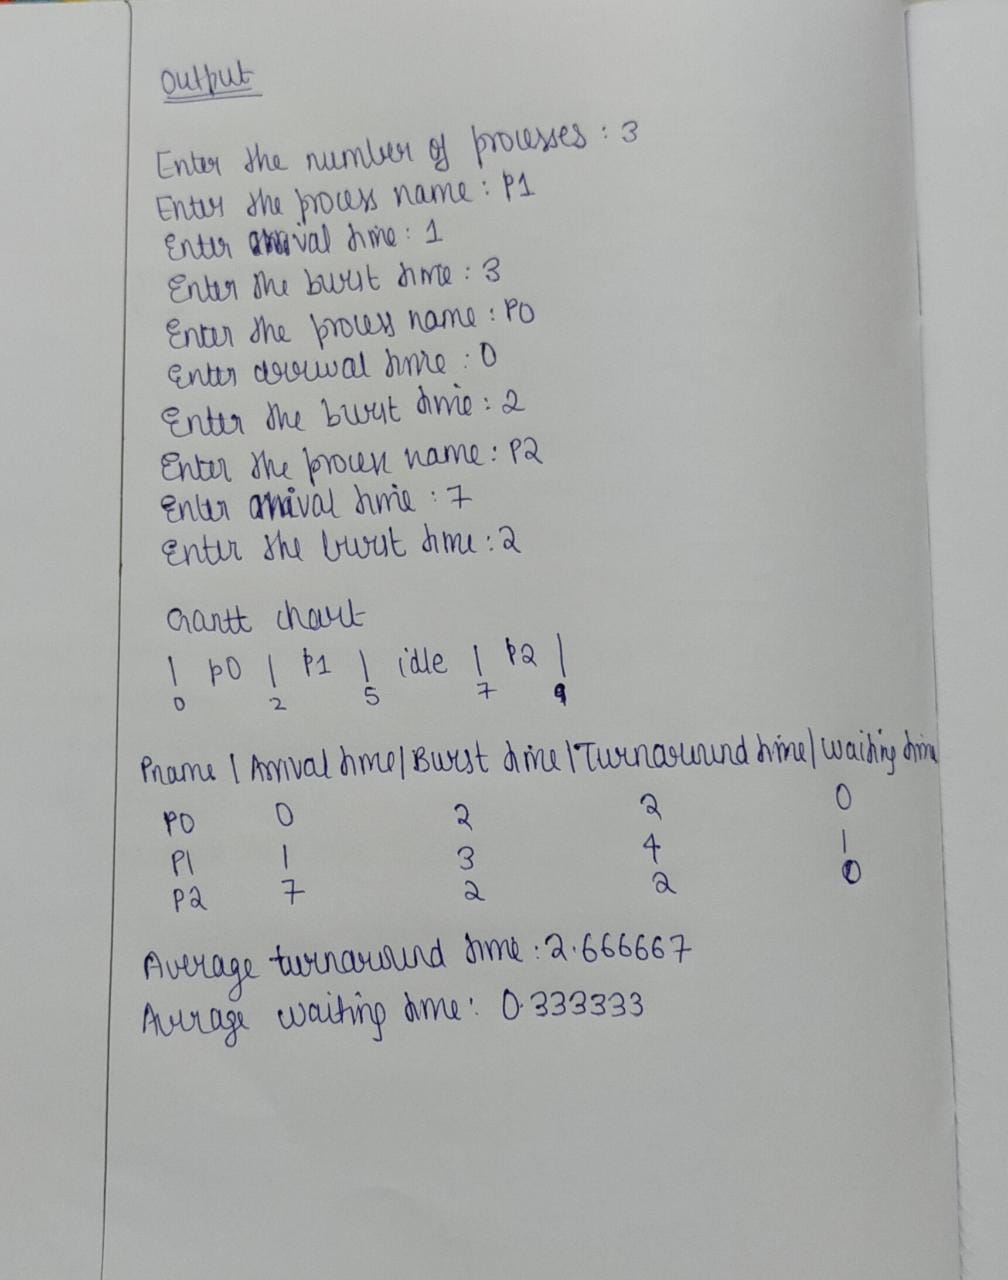 Output
Enter the number of processes : 3
Enter the process name : P1
Enter arrival time : 1
Enter the burst time : 3
Enter the process name : P0
Enter arrival time : 0
Enter the burst time : 2
Enter the process name : P2
Enter arrival time : 7
Enter the burst time : 2
Gantt chart
| p0 | P1 | idle | P2 |
0 2 5 7 9
Pname | Arrival time | Burst time | Turnaround time | waiting time
P0 0 2 2 0
P1 1 3 4 1
P2 7 2 2 0
Average turnaround time : 2.666667
Average waiting time : 0.333333